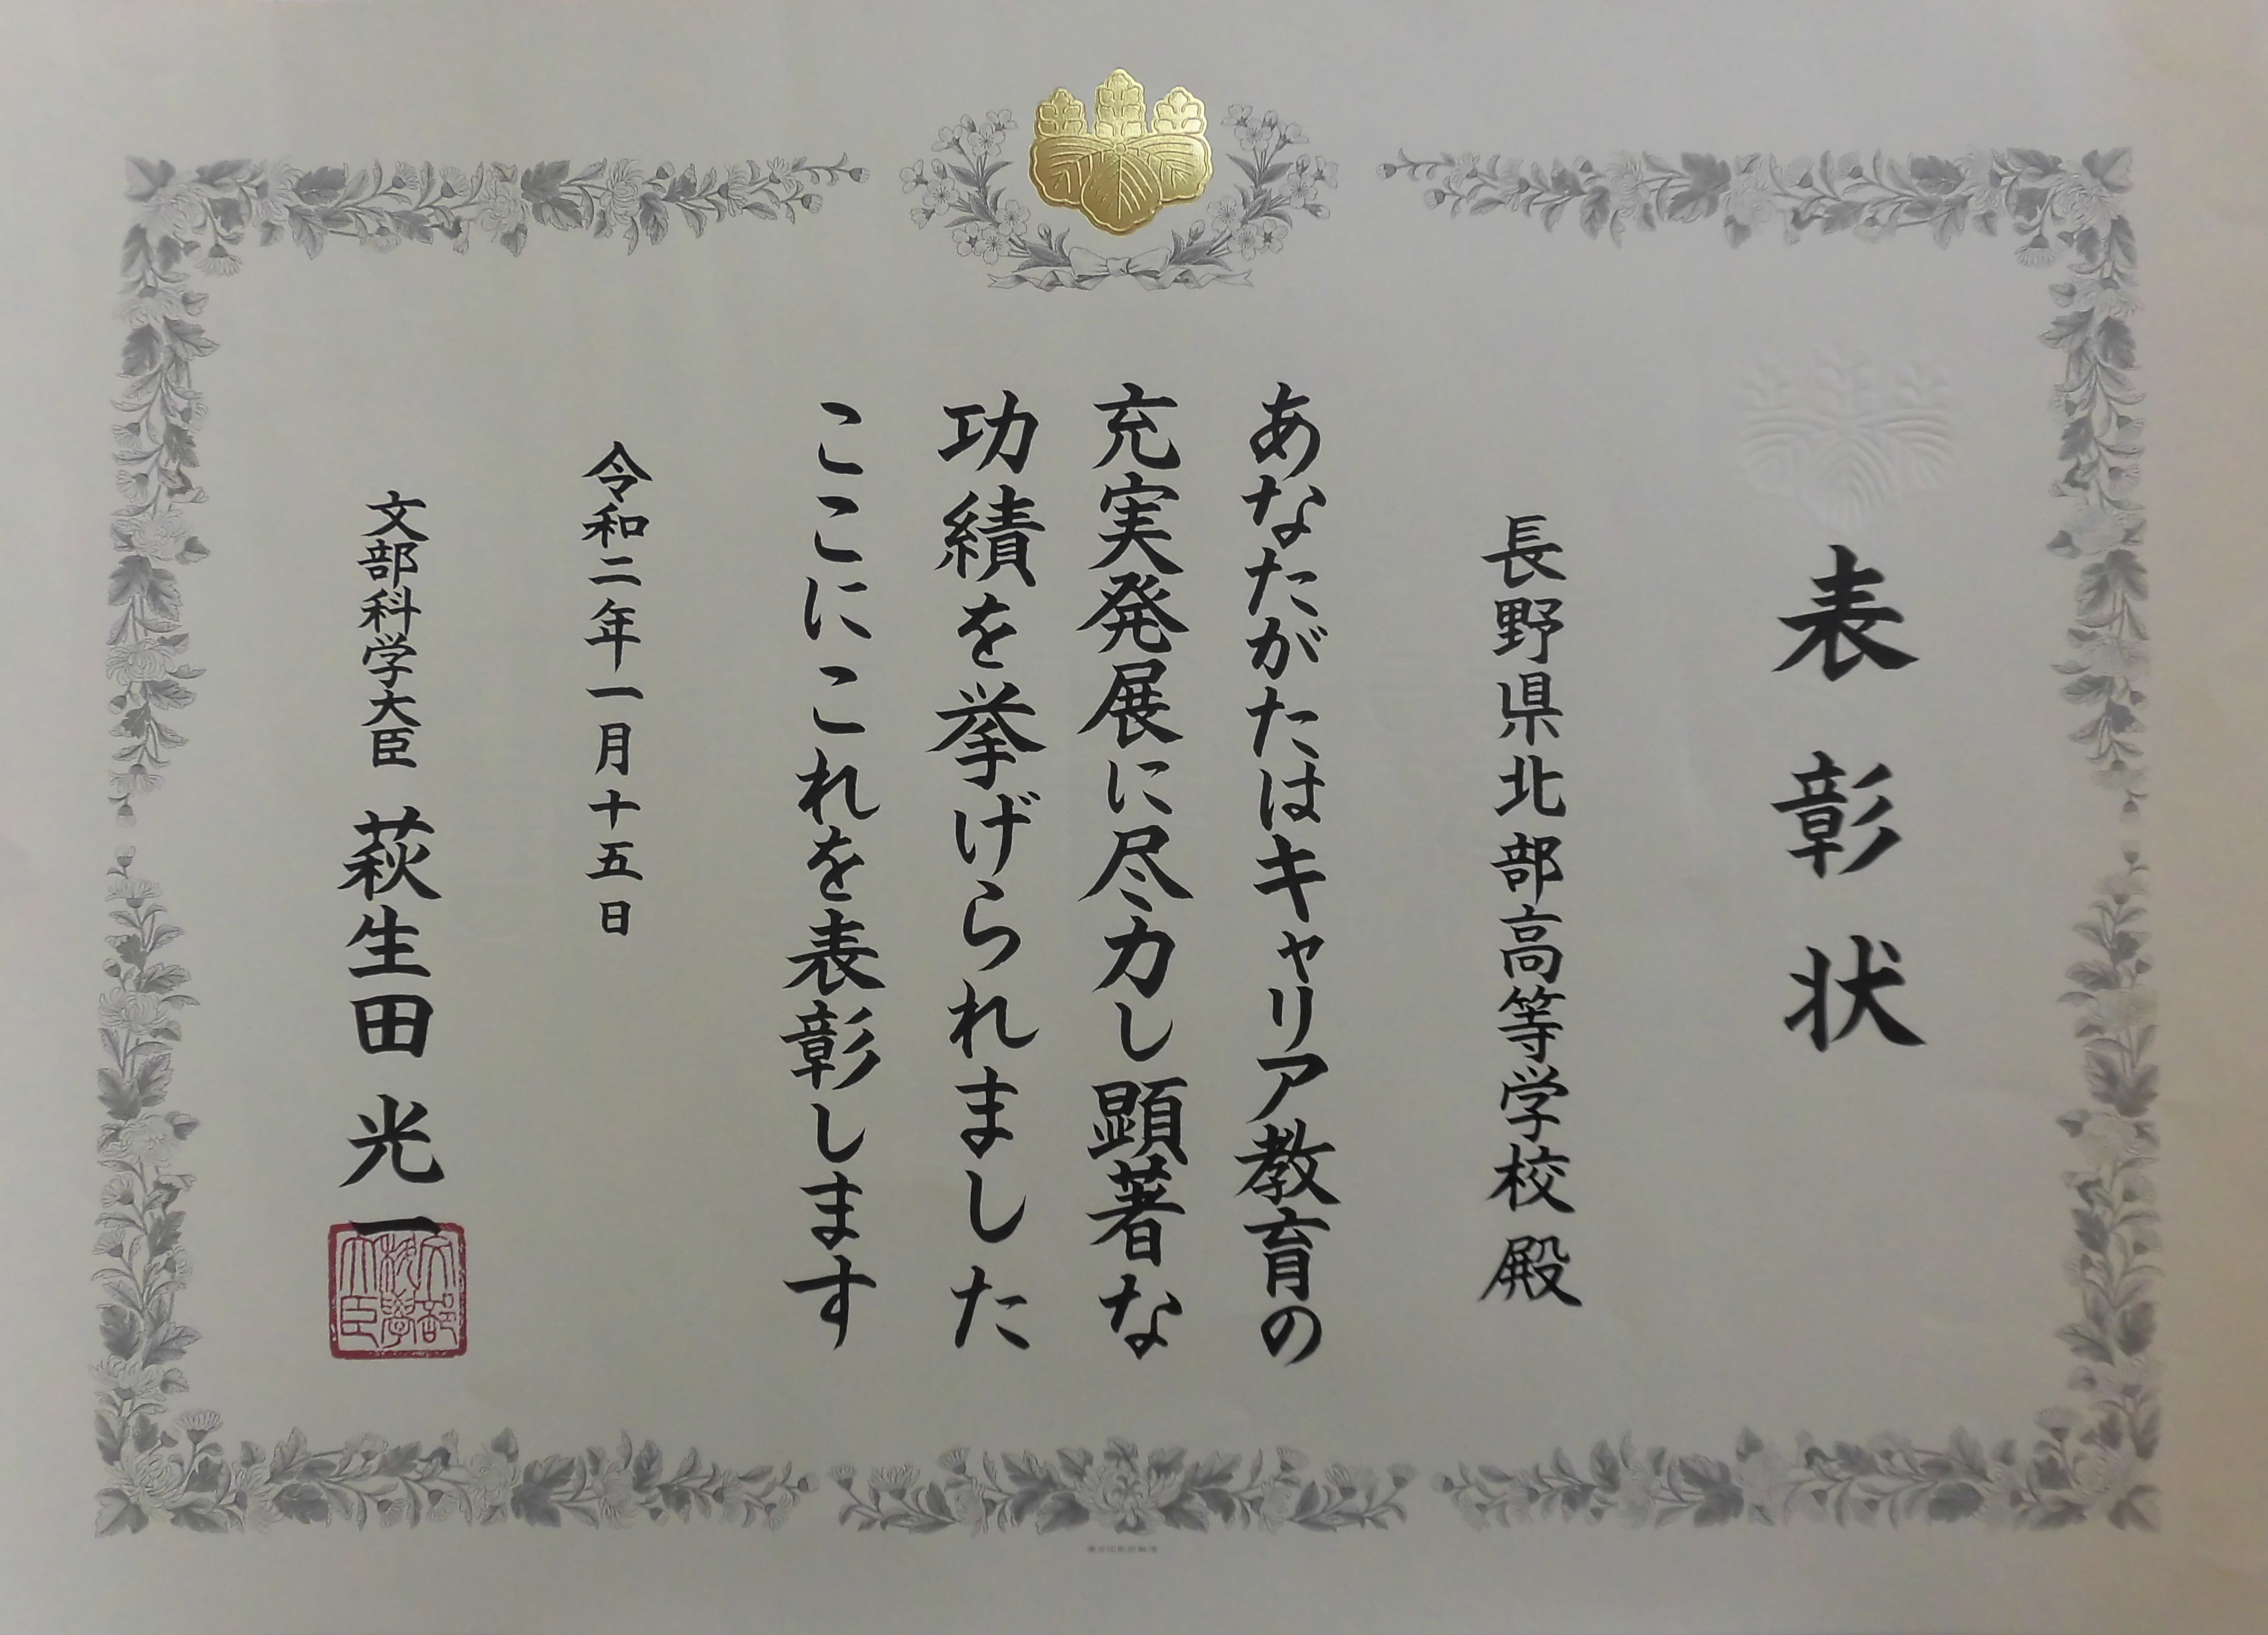 表彰状
長野県北部高等学校殿
あなたがたはキャリア教育の
充実発展に尽力し顕著な
功績を挙げられました
ここにこれを表彰します
令和二年一月十五日
文部科学大臣 萩生田光一
文部科学大臣